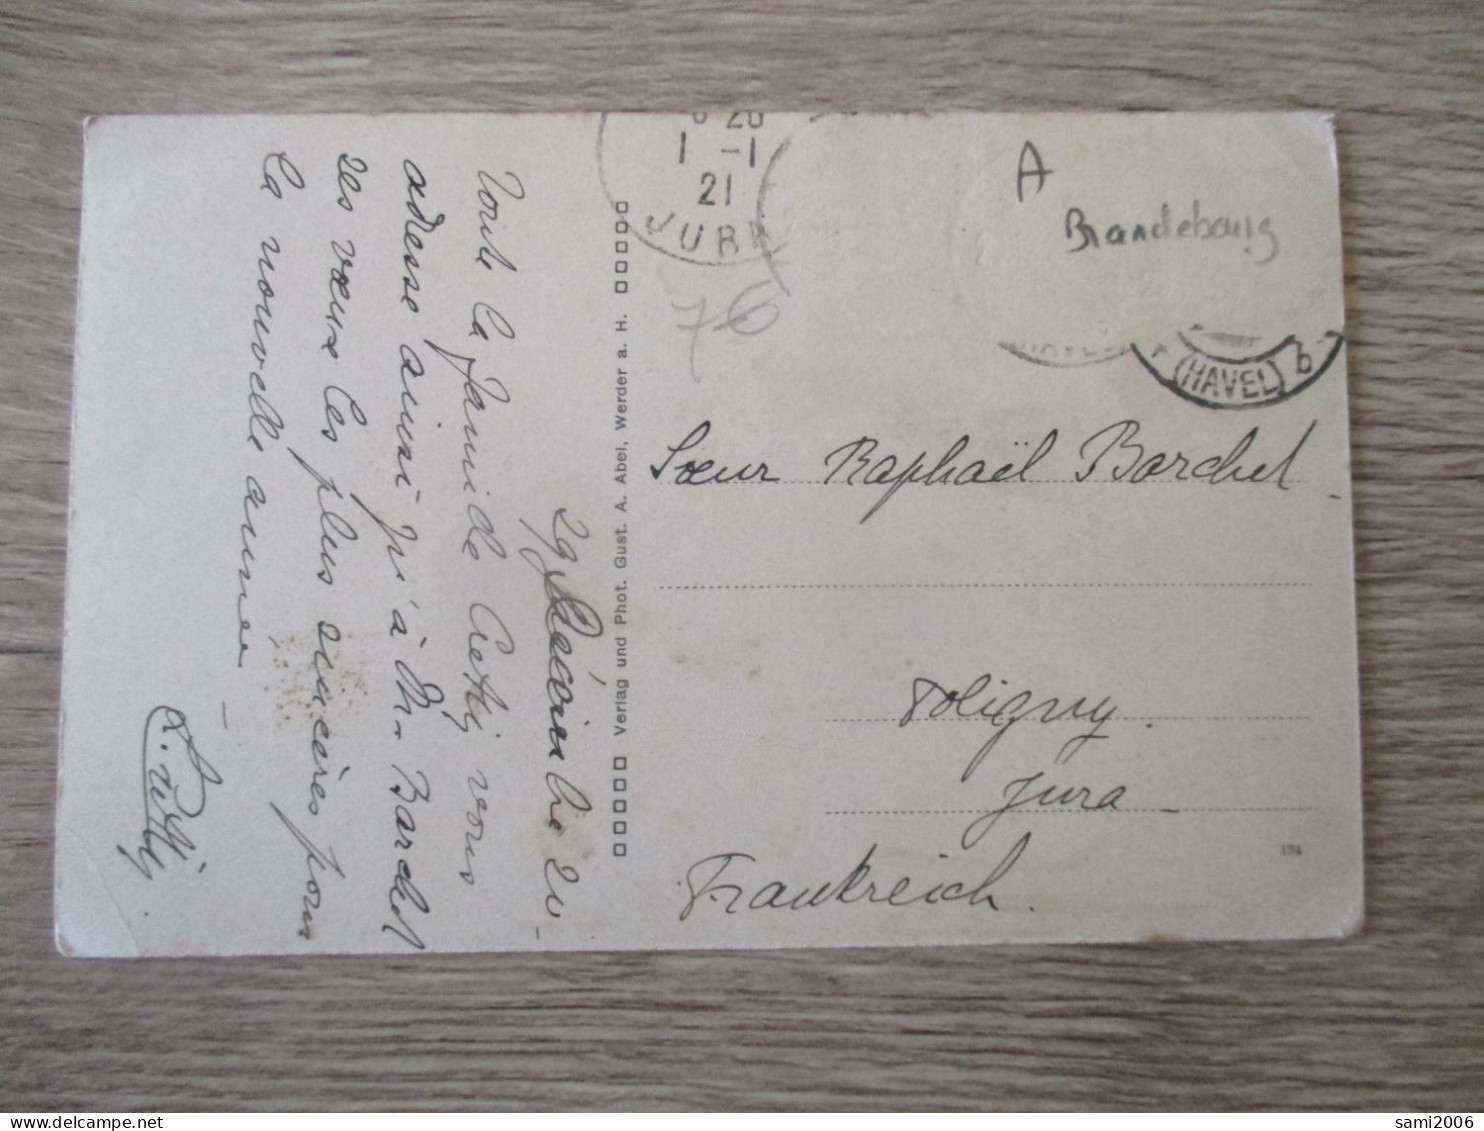 29 Décembre 20 –
Toute la famille vous
adresse ainsi qu'à Mr Bardet
ses vœux les plus sincères pour
la nouvelle année –
Verlag und Phot. Gust. A. Abel, Werder a. H.
20
1 -1
21
JURA
76
A
Brandebourg
(HAVEL) b
Sœur Raphaël Barchet
Poligny.
Jura
Frankreich.
134
sami2006